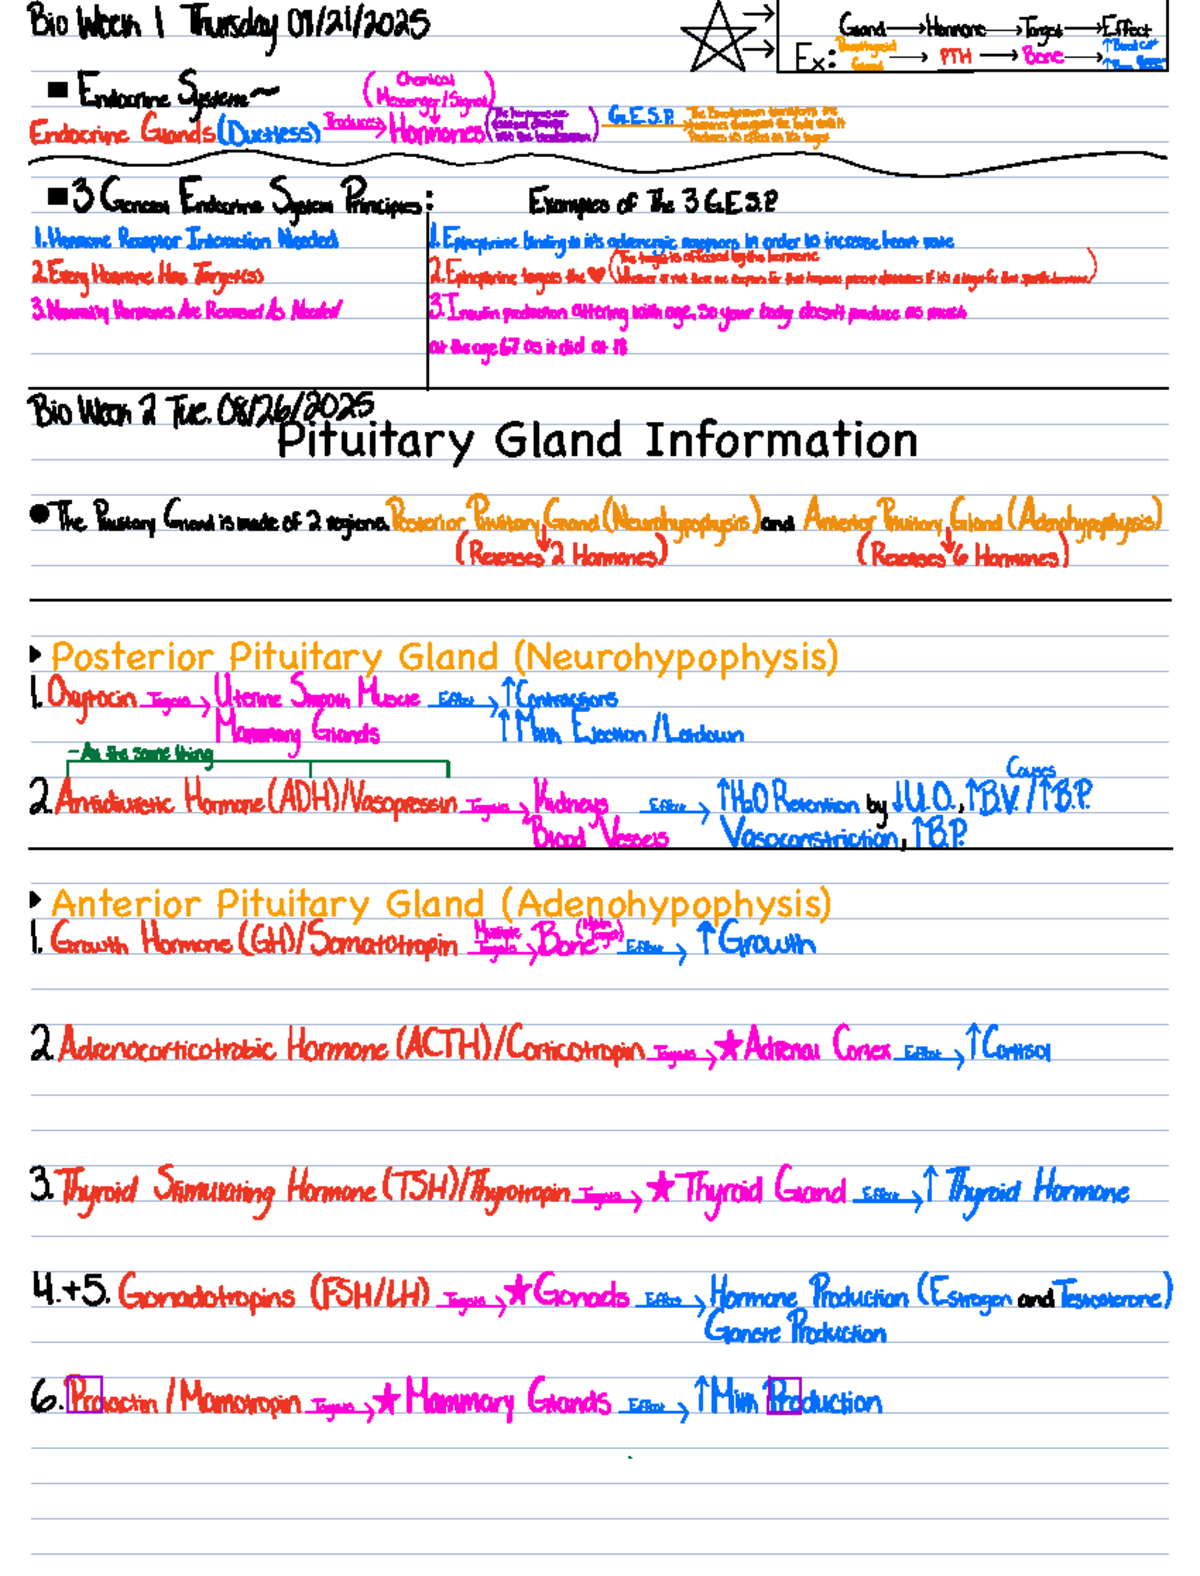 Bio Week 1 Thursday 01/21/2025
Gland → Hormone → Target → Effect
Ex: Parathyroid Gland → PTH → Bone →
■ Endocrine System~
(Chemical Messenger/Signal)
Endocrine Glands (Ductless) Produces → Hormones G.E.S.P.
■ 3 General Endocrine System Principles: Examples of The 3 G.E.S.P
1. Hormone Receptor Interaction Needed
2. Every Hormone Has Target(s)
3. Normally Hormones Are Released As Needed
1. Epinephrine binding to it's adrenergic receptors in order to increase heart rate
2. Epinephrine targets the ♥ (The target is affected by the hormone
3. Insulin production altering with age, so your body doesn't produce as much
at the age 67 as it did at 18
Bio Week 2 Tue. 08/26/2025
Pituitary Gland Information
● The Pituitary Gland is made of 2 regions. Posterior Pituitary Gland (Neurohypophysis) and Anterior Pituitary Gland (Adenohypophysis)
(Releases 2 Hormones) (Releases 6 Hormones)
Posterior Pituitary Gland (Neurohypophysis)
1. Oxytocin Targets → Uterine Smooth Muscle Effect → ↑Contractions
Mammary Glands ↑Milk Ejection/Letdown
-All the same thing
Causes
2. Antidiuretic Hormone (ADH)/Vasopressin Targets → Kidneys Effect → ↑H2O Retention by ↓U.O., ↑B.V./↑B.P.
Blood Vessels Vasoconstriction, ↑B.P.
Anterior Pituitary Gland (Adenohypophysis)
1. Growth Hormone (GH)/Somatotropin Multiple Targets → Bone (Main Target) Effect → ↑Growth
2. Adrenocorticotrobic Hormone (ACTH)/Corticotropin Targets → ★Adrenal Cortex Effect → ↑Cortisol
3. Thyroid Stimulating Hormone (TSH)/Thyrotropin Targets → ★Thyroid Gland Effect → ↑Thyroid Hormone
4.+5. Gonadotropins (FSH/LH) Targets → ★Gonads Effect → Hormone Production (Estrogen and Testosterone)
Gamete Production
6. Prolactin / Mamotropin Targets → ★Mammary Glands Effect → ↑Milk Production